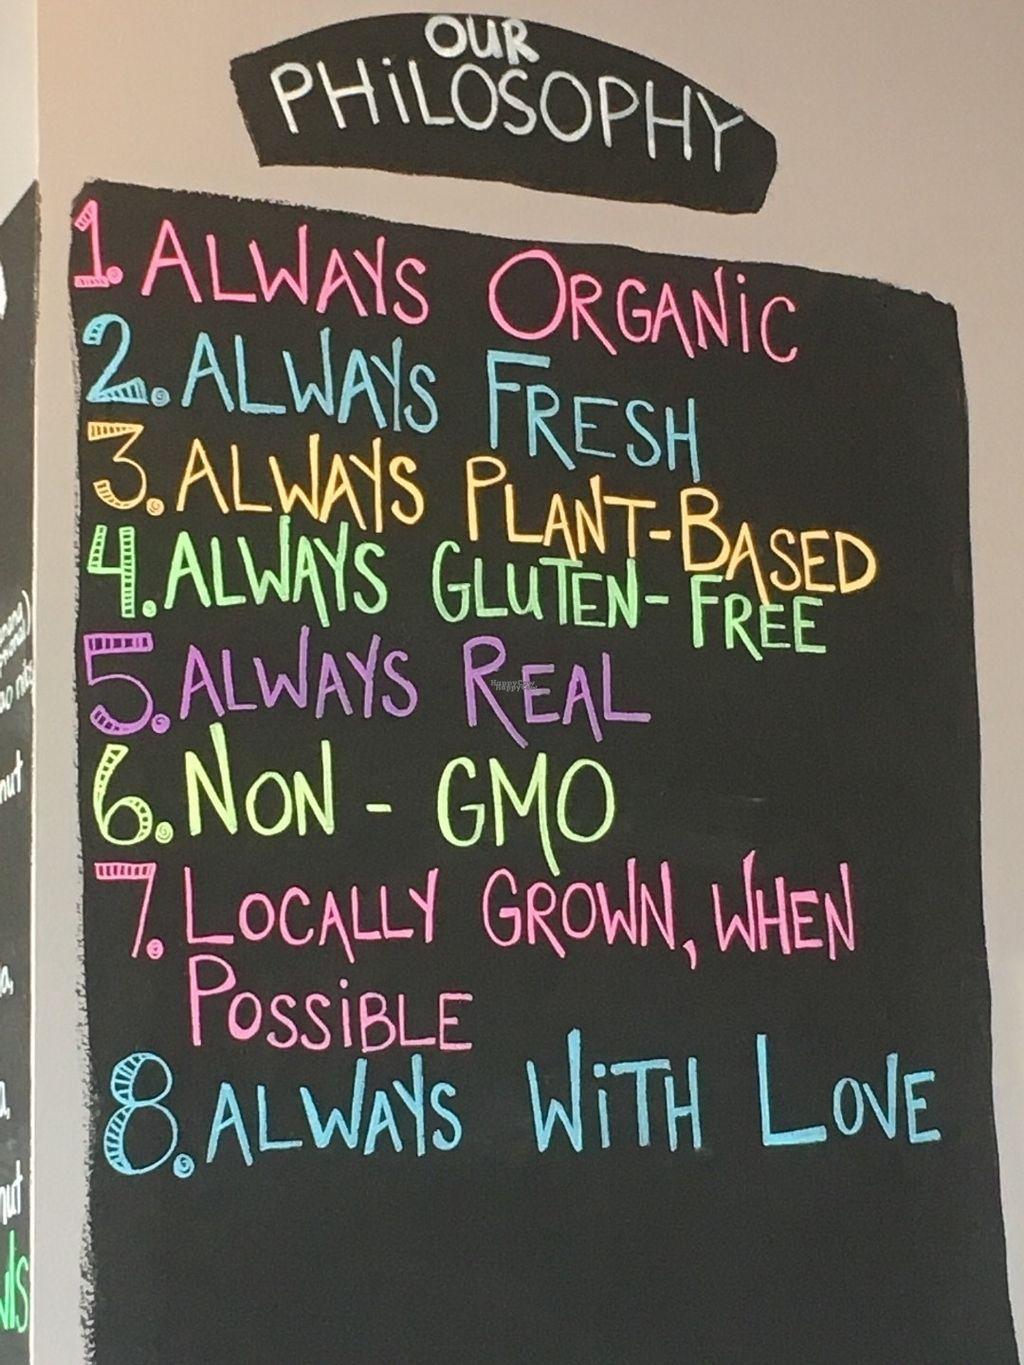 OUR
PHiLOSOPHY
1. ALWAYS ORGANiC
2. ALWAYS FRESH
3. ALWAYS PLANT-BASED
4. ALWAYS GLUTEN-FREE
5. ALWAYS REAL
HappyCow
HappyCow
6. NON - GMO
7. LOCALLY GROWN, WHEN
POSSiBLE
8. ALWAYS WiTH LOVE
nut
nut